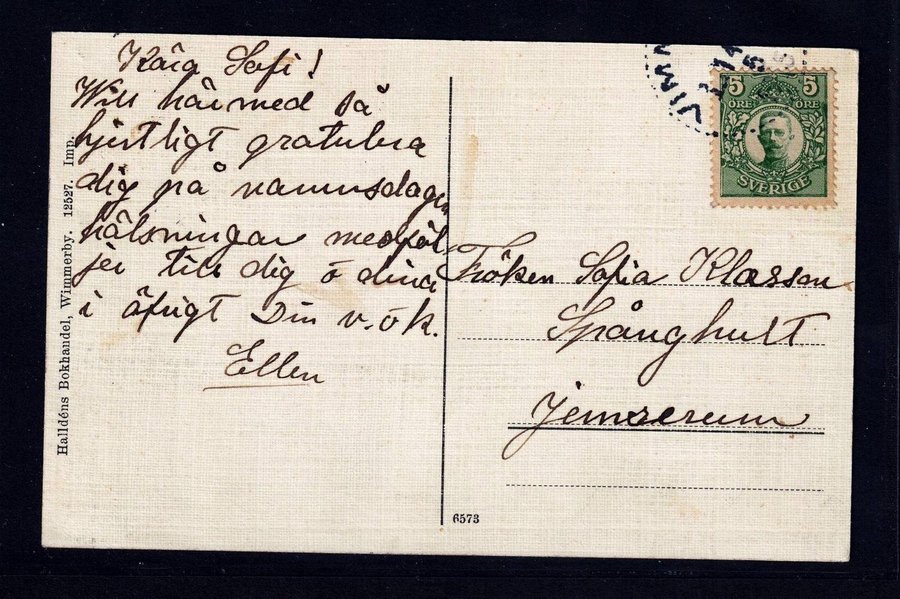 Kära Sofi!
Will härmed så
hjertligt gratulera
dig på namnsdagen
hälsningar medföl
jer till dig o dina
i öfrigt Din v. o k.
Ellen
Halldéns Bokhandel, Wimmerby. 12527. Imp.
5 5
ÖRE ÖRE
SVERIGE
Fröken Sofia Klasson
Spånghult
Jemserum
6573